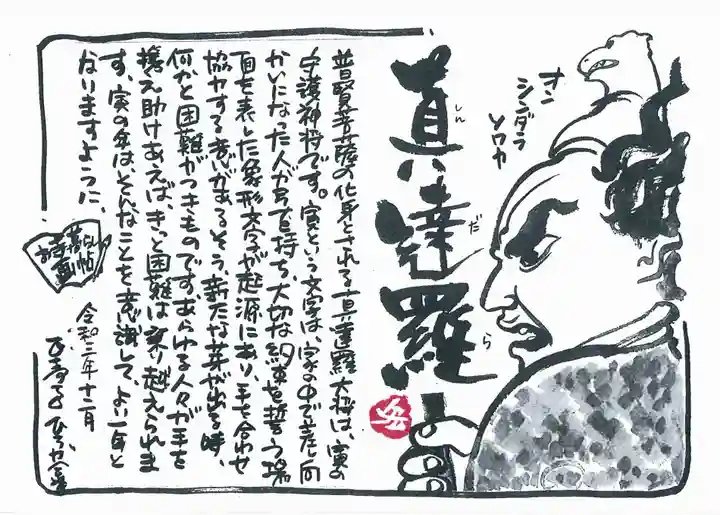 オン
シンダラ
ソワカ
真達羅
しん
だ
ら
普賢菩薩の化身とされる真達羅大将は、寅の
守護神将です。寅という文字は、家の中で差し向
かいになった人が弓で矢を持ち、大切な約束を誓う場
面を表した象形文字が起源にあり、手を合わせ
協力する考えがある。そう、新たな芽が出る時、
何かと困難がつきものです。あらゆる人々が手を
携え助けあえば、きっと困難は乗り越えられま
す。寅の年は、そんなことを意識して、よい一年と
なりますように、
お寺暮らし
画帖
令和三年十二月